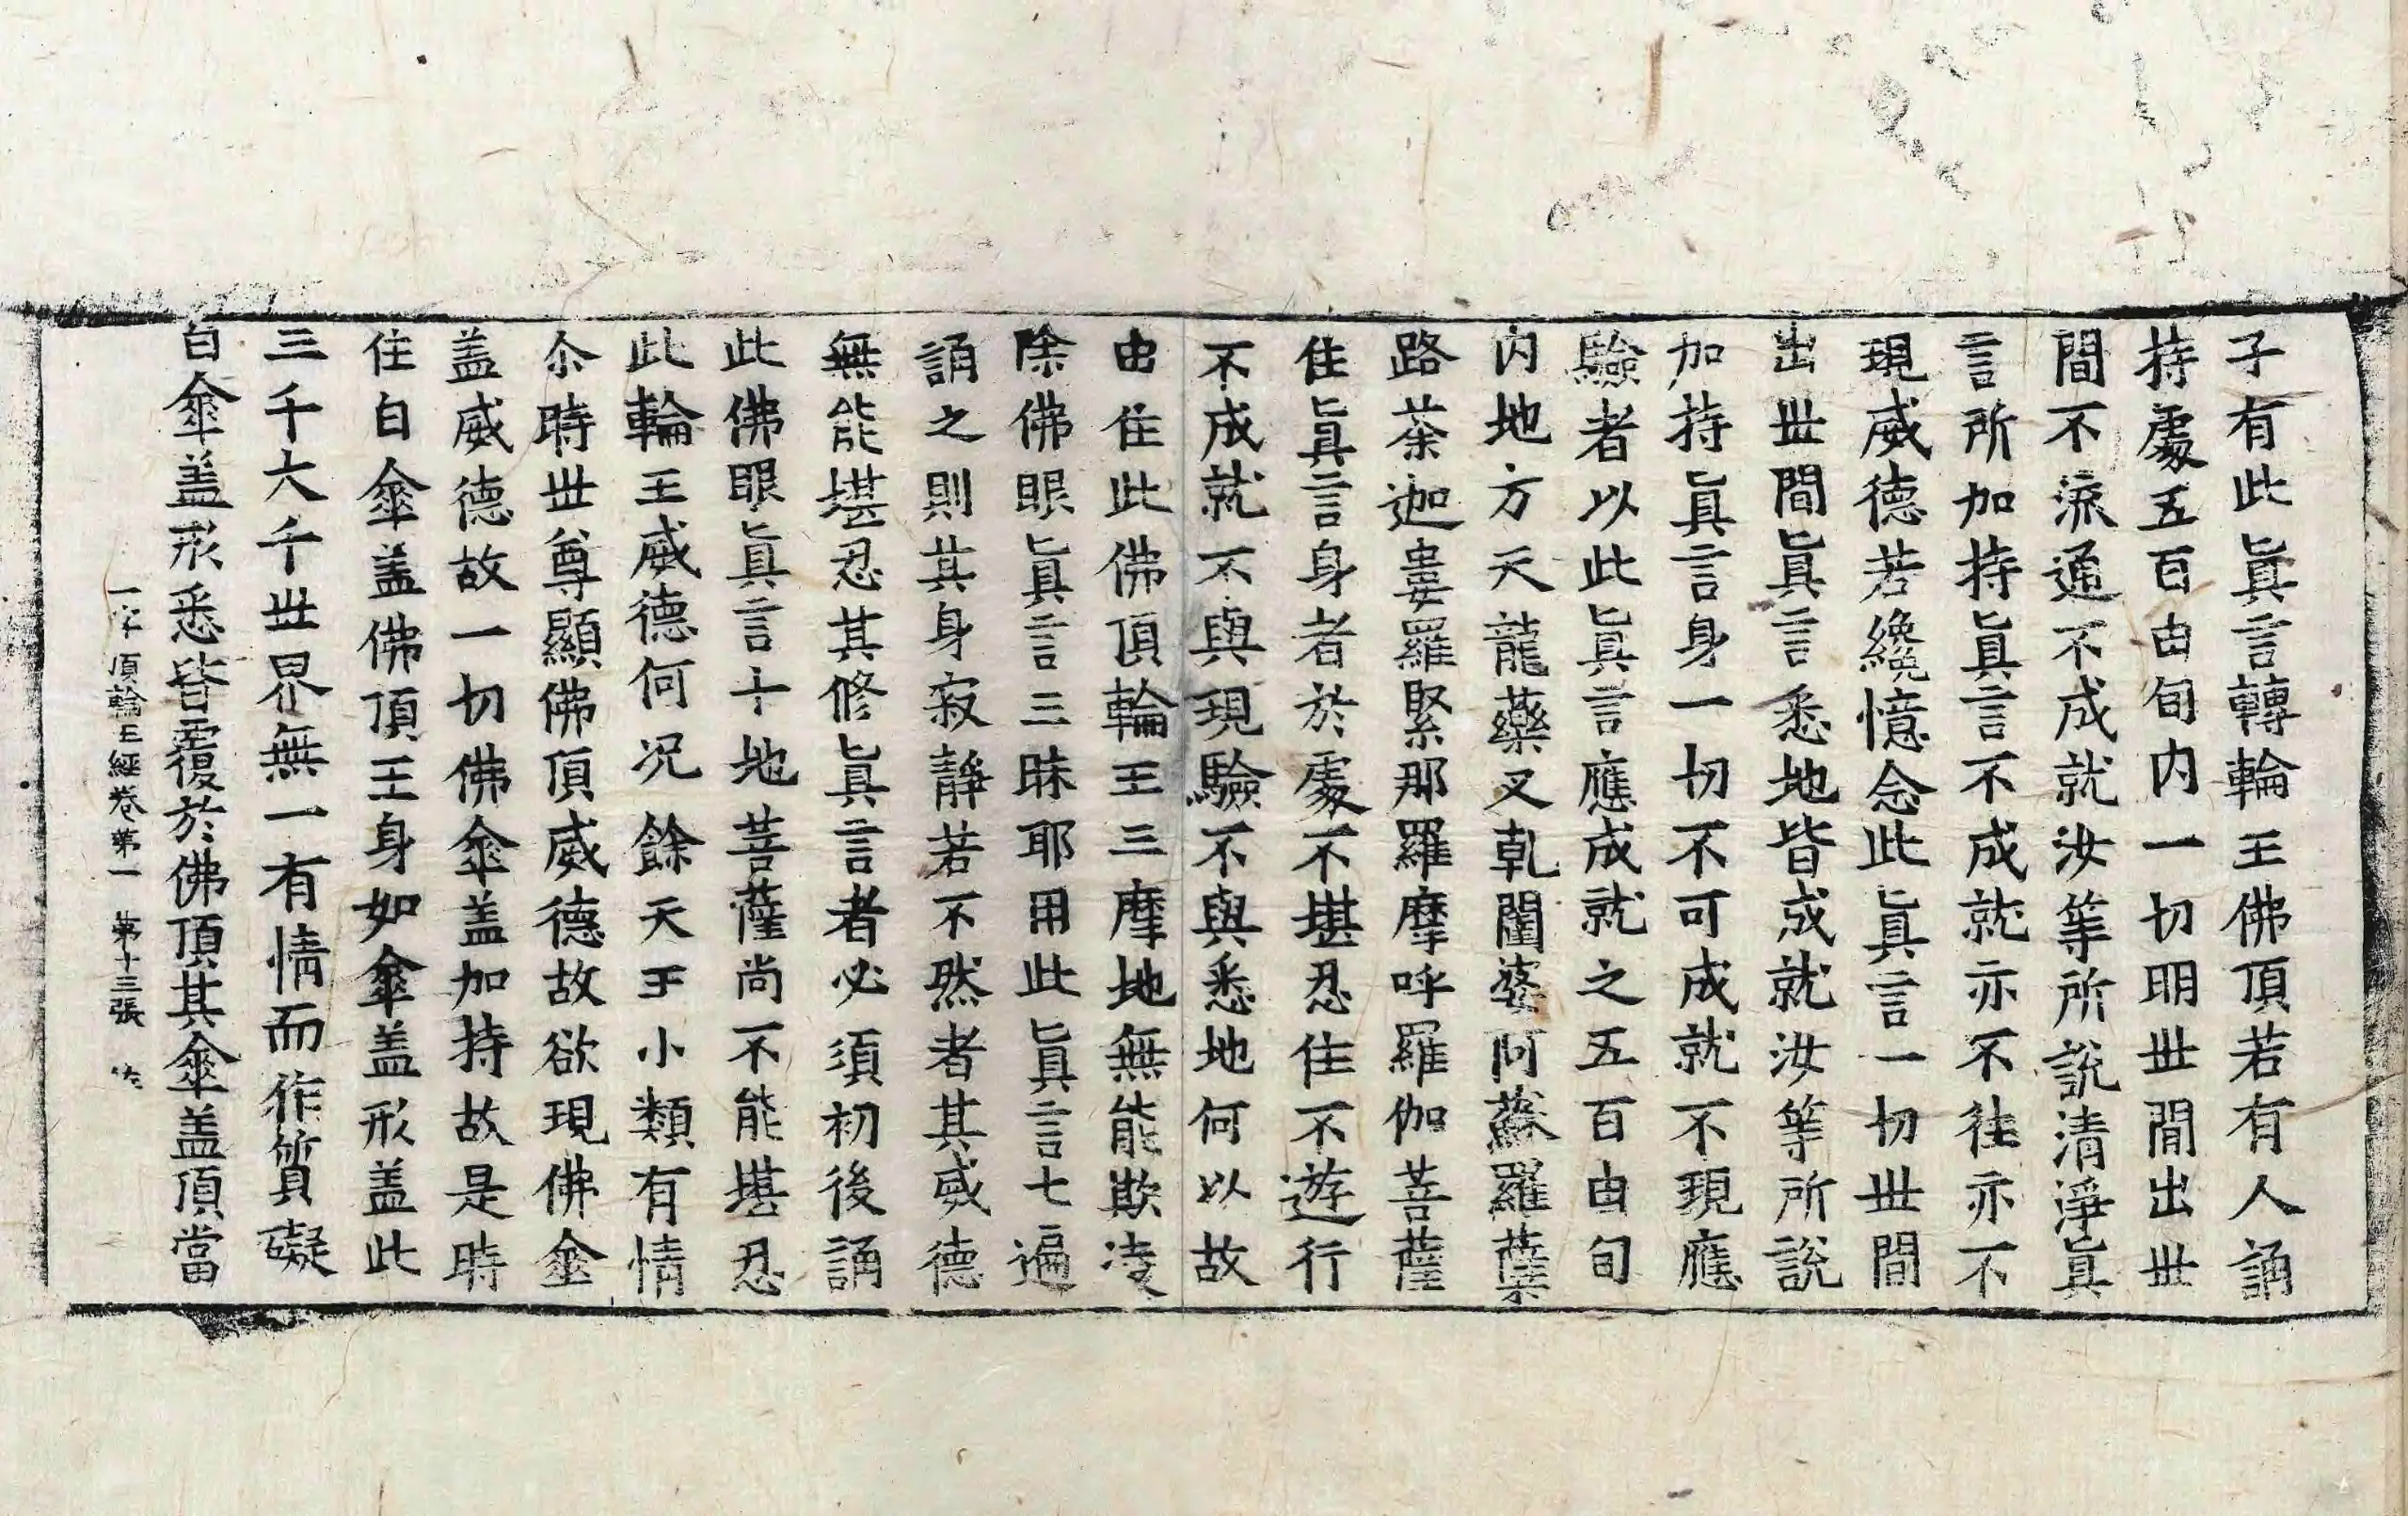 子有此眞言轉輪王佛頂若有人誦
持處五百由旬內一切明世間出世
間不流通不成就汝等所說淸淨眞
言所加持眞言不成就亦不往亦不
現威德若纔憶念此眞言一切世間
出世間眞言悉地皆成就汝等所說
加持眞言身一切不可成就不現應
驗者以此眞言應成就之五百由旬
內地方天龍藥叉乹闥婆阿蘇羅蘖
路荼迦婁羅緊那羅摩呼羅伽菩薩
住眞言身者於處不堪忍住不遊行
不成就不與現驗不與悉地何以故
由住此佛頂輪王三摩地無能欺凌
除佛眼眞言三昧耶用此眞言七遍
誦之則其身寂靜若不然者其威德
無能堪忍其修眞言者必須初後誦
此佛眼眞言十地菩薩尚不能堪忍
此輪王威德何况餘天王小類有情
尒時世尊顯佛頂威德故欲現佛傘
盖威德故一切佛傘盖加持故是時
住白傘盖佛頂王身如傘盖形盖此
三千大千世界無一有情而作質礙
白傘盖形悉皆覆於佛頂其傘盖頂當
一字頂輪王經卷第一 第十三張